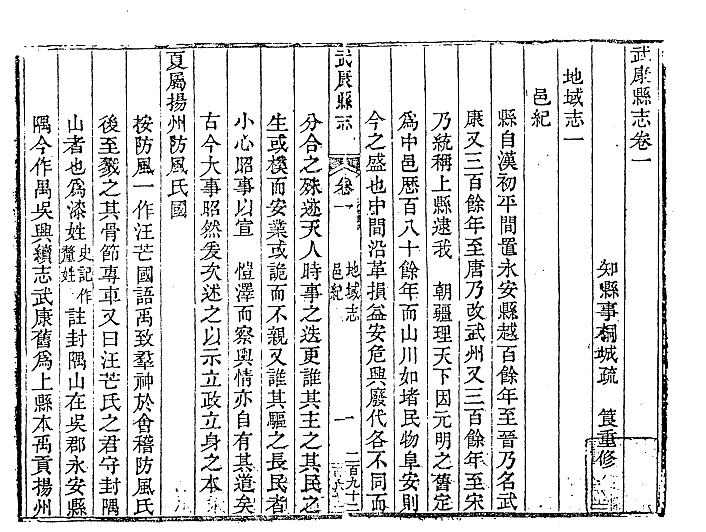 武康縣志卷一
知縣事桐城疏 筤重修
地域志一
邑紀
縣自漢初平間置永安縣越百餘年至晉乃名武
康又三百餘年至唐乃改武州又三百餘年至宋
乃統稱上縣逮我 朝疆理天下因元明之舊定
爲中邑歷百八十餘年而山川如堵民物阜安則
今之盛也中間沿革損益安危興廢代各不同而
武康縣志 卷一 地域志 邑紀 一 二百九十二
分合之殊迹天人時事之迭更誰其主之其民之
生或樸而安業或詭而不親又誰其驅之長民者
小心昭事以宣 愷澤而察輿情亦自有其道矣
古今大事昭然爰次述之以示立政立身之本
夏屬揚州防風氏國
按防風一作汪芒國語禹致羣神於會稽防風氏
後至戮之其骨節專車又曰汪芒氏之君守封隅
山者也爲漆姓史記作釐姓註封隅山在吳郡永安縣
隅今作禺吳興續志武康舊爲上縣本禹貢揚州